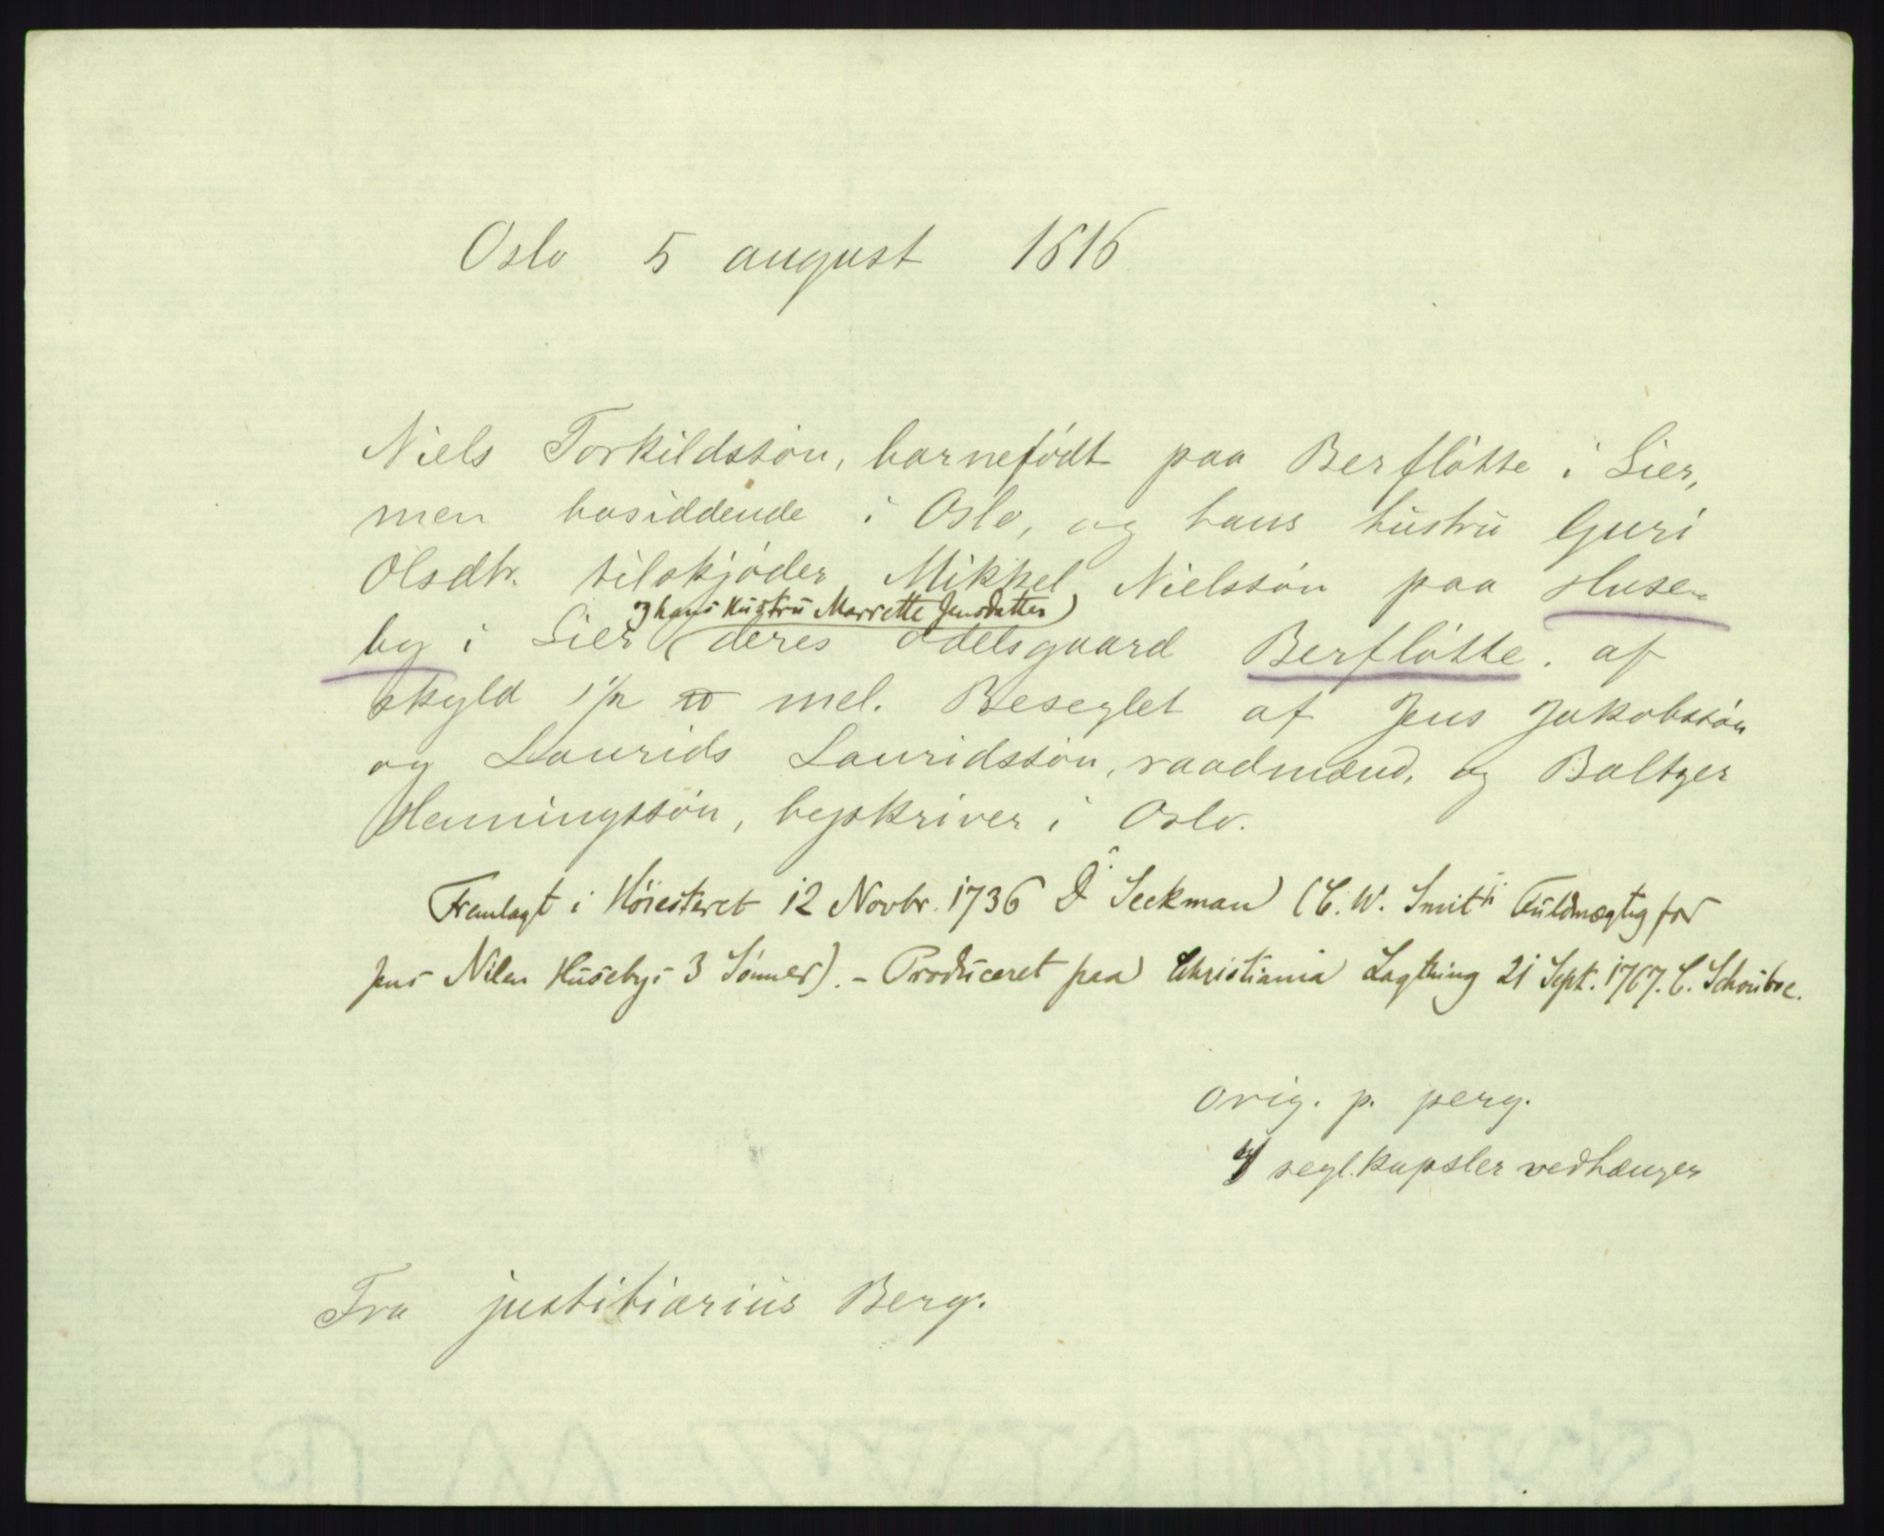 Oslo 5 august 1616
Niels Torkildssön, barnefödt paa Berflötte i Lier,
men bosiddende i Oslo, og hans hustru Guri
Olsdtr. tilskjöder Mikkel Nielssön paa Huse-
og hans Hustru Marrette Jensdatter)
by i Lier (deres odelsgaard Berflötte. af
skyld 1½ mel. Beseglet af Jens Jakobssön
og Laurids Lauridssön, raadmænd, og Baltzer
Henningssön, byskriver i Oslo.
Fremlagt i Höiesteret 12 Novbr. 1736 Seckman (C. W. Smith Fuldmægtig for
Jens Nilsen Husebys 3 Sönner). - Produceret paa Christiania Lagthing 21 Sept. 1767. C. Schouboe.
orig. p. perg.
4 segl.kapsler vedhænger
Fra justitiarius Berg.